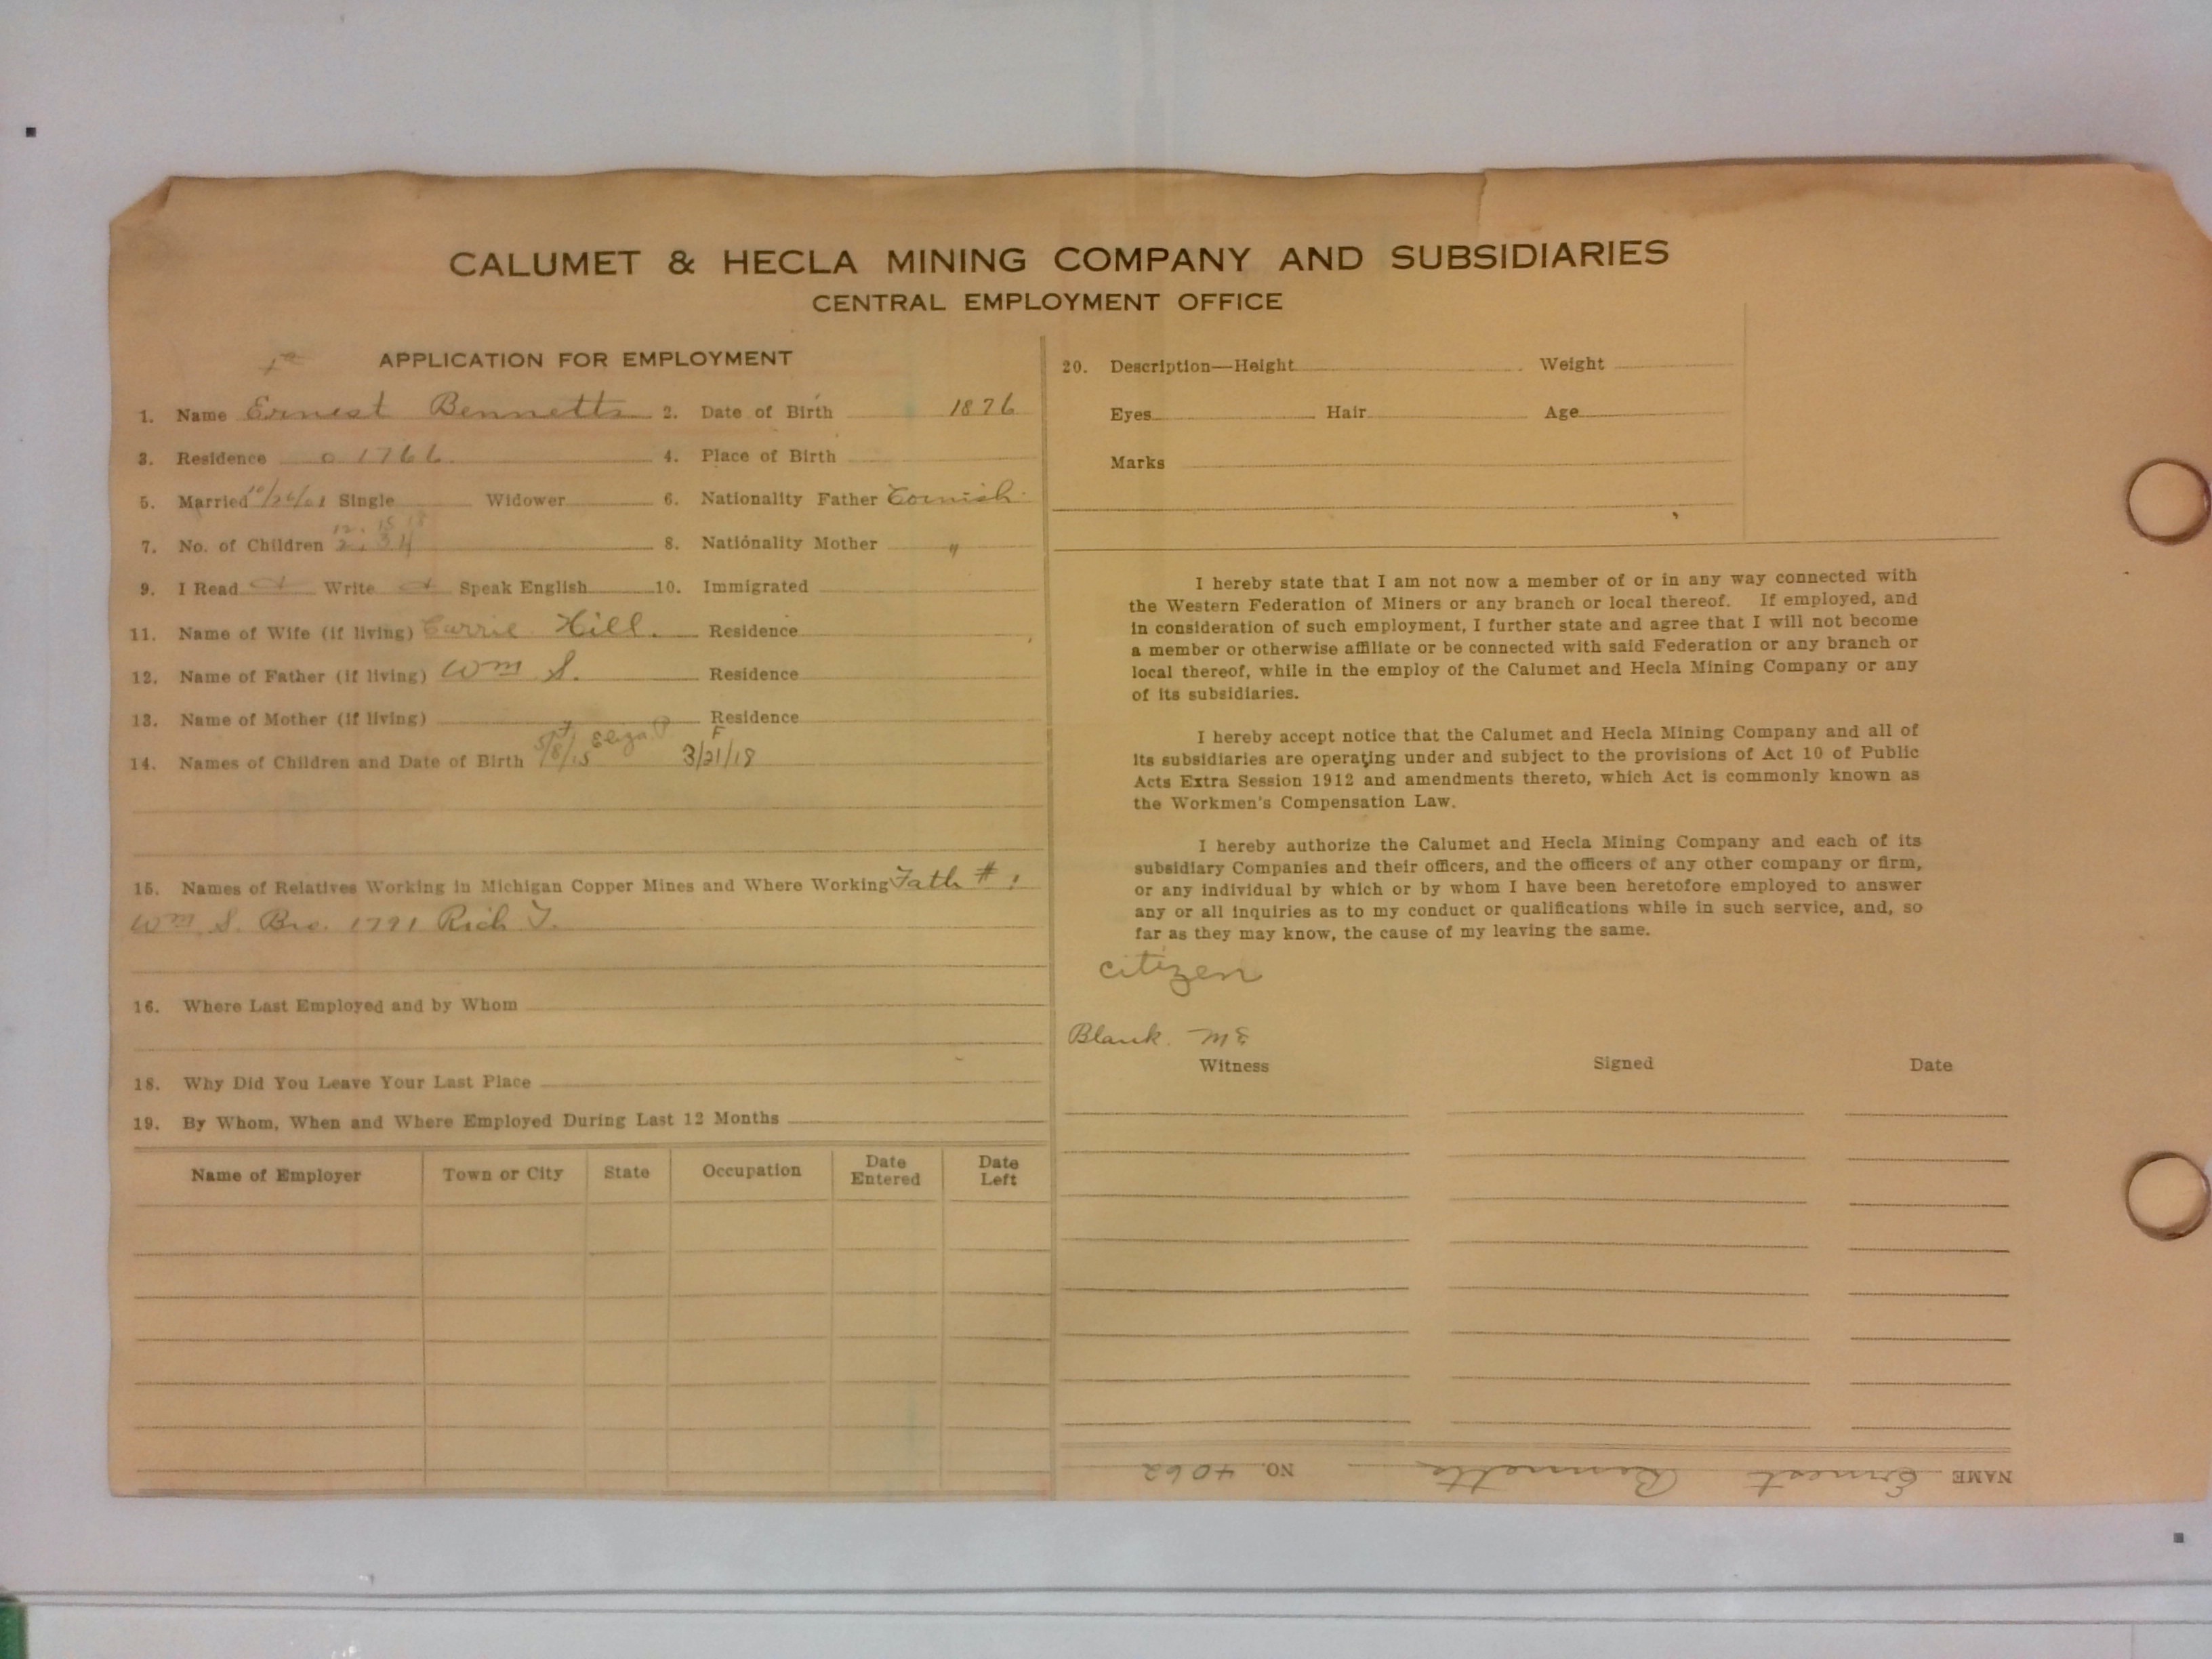 CALUMET & HECLA MINING COMPANY AND SUBSIDIARIES
CENTRAL EMPLOYMENT OFFICE
APPLICATION FOR EMPLOYMENT
1. Name Ernest Bennetts 2. Date of Birth 1876
3. Residence o 1766 4. Place of Birth
5. Married 10/26/01 Single Widower 6. Nationality Father Cornish
7. No. of Children 2. 3 4 12. 15 18 8. Nationality Mother "
9. I Read Write Speak English 10. Immigrated
11. Name of Wife (if living) Carrie Hill. Residence
12. Name of Father (if living) Wm S. Residence
13. Name of Mother (if living) Residence
14. Names of Children and Date of Birth 5/8/15 Eliza P F 3/21/18
15. Names of Relatives Working in Michigan Copper Mines and Where Working Fath #1
Wm S. Bro. 1791 Rich T.
16. Where Last Employed and by Whom
18. Why Did You Leave Your Last Place
19. By Whom, When and Where Employed During Last 12 Months
Name of Employer Town or City State Occupation Date Entered Date Left
20. Description—Height Weight
Eyes Hair Age
Marks
I hereby state that I am not now a member of or in any way connected with
the Western Federation of Miners or any branch or local thereof. If employed, and
in consideration of such employment, I further state and agree that I will not become
a member or otherwise affiliate or be connected with said Federation or any branch or
local thereof, while in the employ of the Calumet and Hecla Mining Company or any
of its subsidiaries.
I hereby accept notice that the Calumet and Hecla Mining Company and all of
its subsidiaries are operating under and subject to the provisions of Act 10 of Public
Acts Extra Session 1912 and amendments thereto, which Act is commonly known as
the Workmen's Compensation Law.
I hereby authorize the Calumet and Hecla Mining Company and each of its
subsidiary Companies and their officers, and the officers of any other company or firm,
or any individual by which or by whom I have been heretofore employed to answer
any or all inquiries as to my conduct or qualifications while in such service, and, so
far as they may know, the cause of my leaving the same.
citizen
Blank.
Witness Signed Date
NAME Ernest Bennetts NO. 4062